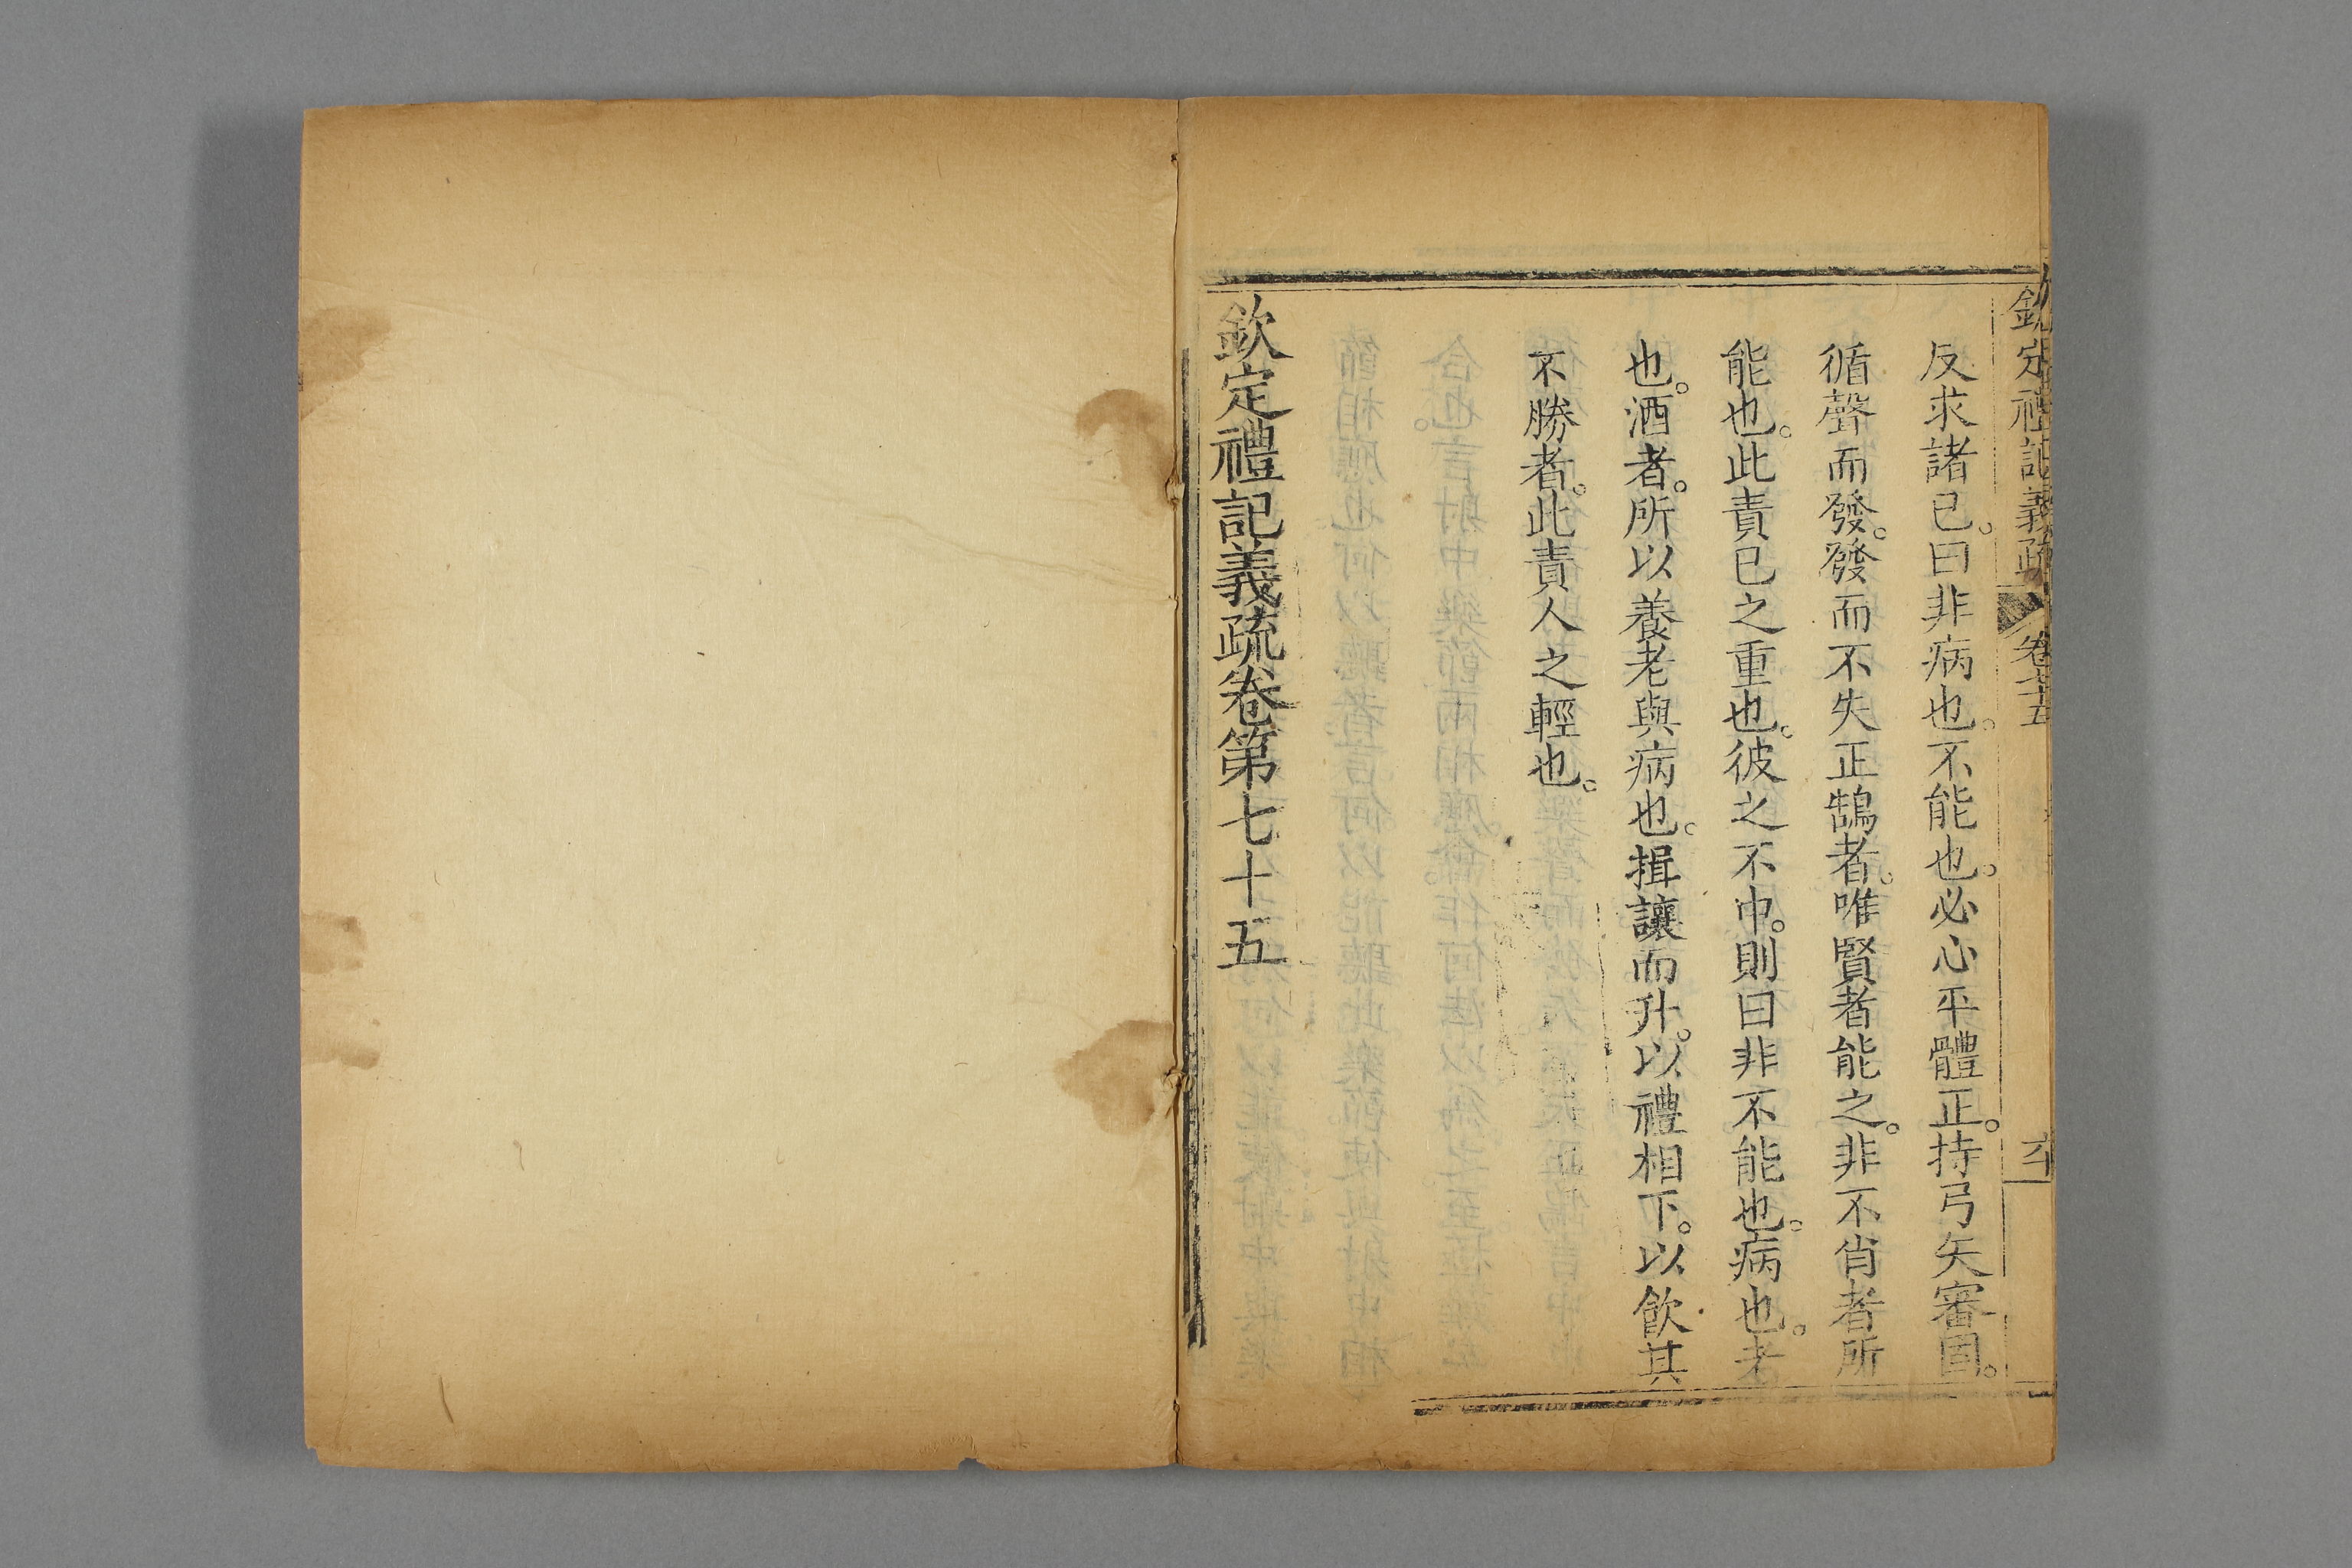 欽定禮記義疏 卷七十五 六十
反求諸已。曰非病也。不能也。必心平體正。持弓矢審固。
循聲而發。發而不失正鵠者。唯賢者能之。非不肖者所
能也。此責已之重也。彼之不中。則曰非不能也。病也。老
也。酒者。所以養老與病也。揖讓而升。以禮相下。以飲其
不勝者。此責人之輕也。
欽定禮記義疏卷第七十五